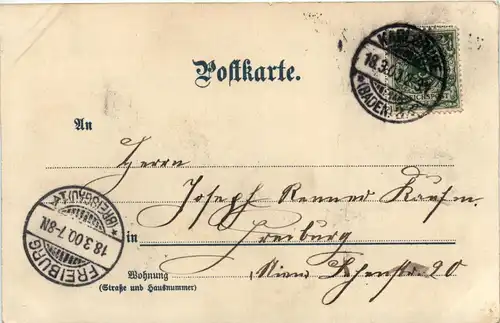 Postkarte.
18.3.00
(BADEN)
REICHSPOST
An
Herrn
Joseph Renner Kaufm.
in Freiburg
Wohnung
(Straße und Hausnummer)
20
FREIBURG
18.3.00.7-8N.
*(BREISGAU)1.*